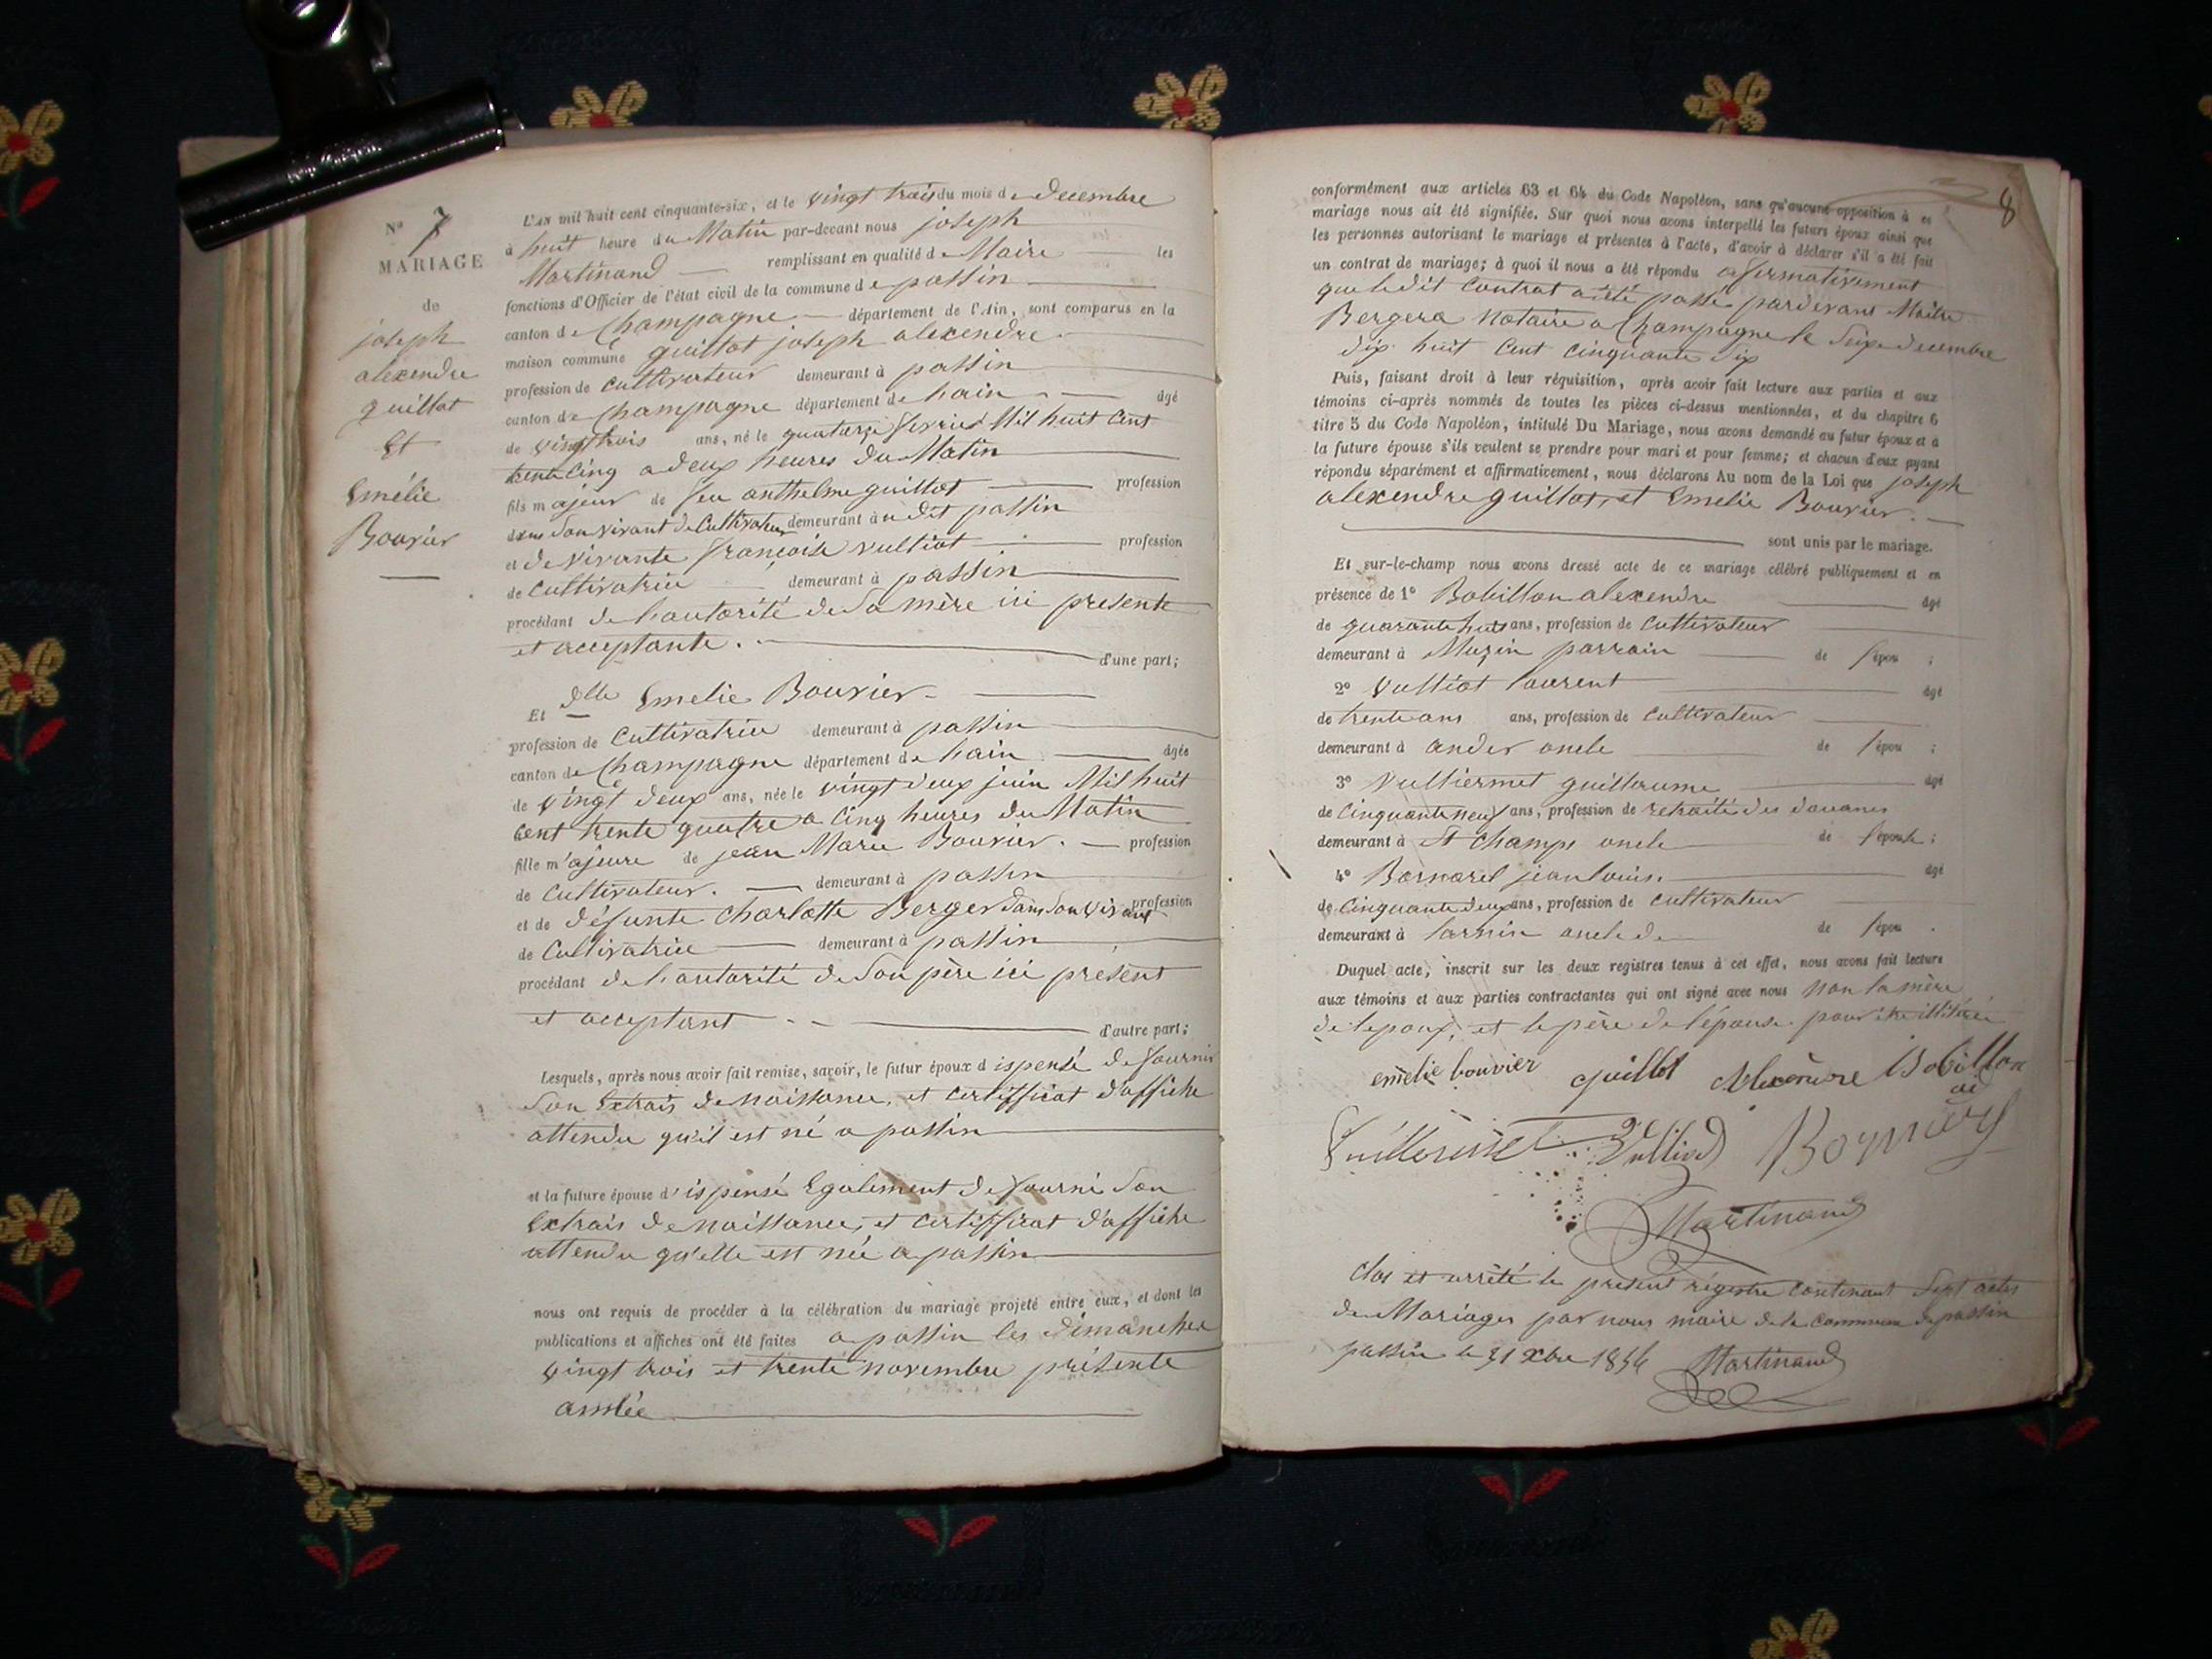 N° 7
MARIAGE
de
joseph
alexendre
guillot
Et
Emélie
Bouvier
L'AN mil huit cent cinquante-six, et le vingt trois du mois de decembre
à huit heure du Matin par-devant nous joseph
Martinand remplissant en qualité de Maire les
fonctions d'Officier de l'état civil de la commune de passin
canton de Champagne département de l'Ain, sont comparus en la
maison commune guillot joseph alexendre
profession de cultivateur demeurant à passin
canton de Champagne département de hain âgé
de vingt trois ans, né le quatorze fevrier Mil huit Cent
trente Cinq a deux heures du Matin
fils majeur de feu anthelme guillot profession
dans son vivant de Cultivateur demeurant à u dit passin
et de vivante françoise vultiot profession
de Cultivatrice demeurant à passin
procédant de l'autorité de Sa mère ici presente
et acceptante. d'une part;
Et dlle Emelie Bouvier
profession de Cultivatrice demeurant à passin
canton de Champagne département de hain âgée
de vingt deux ans, née le vingt deux juin Mil huit
cent trente quatre a Cinq heures du Matin
fille m'ajeure de jean Marie Bouvier. profession
de Cultivateur. demeurant à passin
et de défunte Charlotte Berger dans Son vivant profession
de Cultivatrice demeurant à passin
procédant de l'autorité de Son père ici présent
et acceptant d'autre part;
Lesquels, après nous avoir fait remise, savoir, le futur époux d ispensé de fournir
Son Extrais de naissance, et certifficat d'affiche
attendu qu'il est né a passin
et la future épouse d'ispensé Egalement de fourni Son
Extrais de naissance, et certifficat d'affiche
attendu qu'elle est née a passin
nous ont requis de procéder à la célébration du mariage projeté entre eux, et dont les
publications et affiches ont été faites a passin les dimanches
vingt trois et trente novembre présente
année
8
conformément aux articles 63 et 64 du Code Napoléon, sans qu'aucune opposition à ce
mariage nous ait été signifiée. Sur quoi nous avons interpellé les futurs époux ainsi que
les personnes autorisant le mariage et présentes à l'acte, d'avoir à déclarer s'il a été fait
un contrat de mariage; à quoi il nous a été répondu afirmativement
que ledit Contrat a été passé pardevant Maitre
Bergera Notaire a Champagne le Seize decembre
dix huit Cent Cinquante Six
Puis, faisant droit à leur réquisition, après avoir fait lecture aux parties et aux
témoins ci-après nommés de toutes les pièces ci-dessus mentionnées, et du chapitre 6
titre 5 du Code Napoléon, intitulé Du Mariage, nous avons demandé au futur époux et à
la future épouse s'ils veulent se prendre pour mari et pour femme; et chacun d'eux ayant
répondu séparément et affirmativement, nous déclarons Au nom de la Loi que joseph
alexendre guillot, et Emelie Bouvier.
sont unis par le mariage.
Et sur-le-champ nous avons dressé acte de ce mariage célébré publiquement et en
présence de 1° Bobillon alexendre âgé
de quarante huit ans, profession de Cultivateur
demeurant à Muzin parrain de l'épou ;
2° Vultiot laurent âgé
de trente ans ans, profession de Cultivateur
demeurant à Ander oncle de l'épou ;
3° Vulliermet guillaume âgé
de Cinquante neuf ans, profession de retraité des douanes
demeurant à St Champ oncle de l'épouse;
4° Bornarel jean louis. âgé
de Cinquante deux ans, profession de cultivateur
demeurant à larnin oncle de de l'épou .
Duquel acte, inscrit sur les deux registres tenus à cet effet, nous avons fait lecture
aux témoins et aux parties contractantes qui ont signé avec nous non la mère
de lepoux, et le père de l'épouse pour être illitérée
emelie bouvier guillot Alexendre Bobillon
Martinand
Clos et arrêté le present régistre contenant Sept actes
de Mariages par nous maire de la Commune de passin
passin le 31 Xbre 1856 Martinand